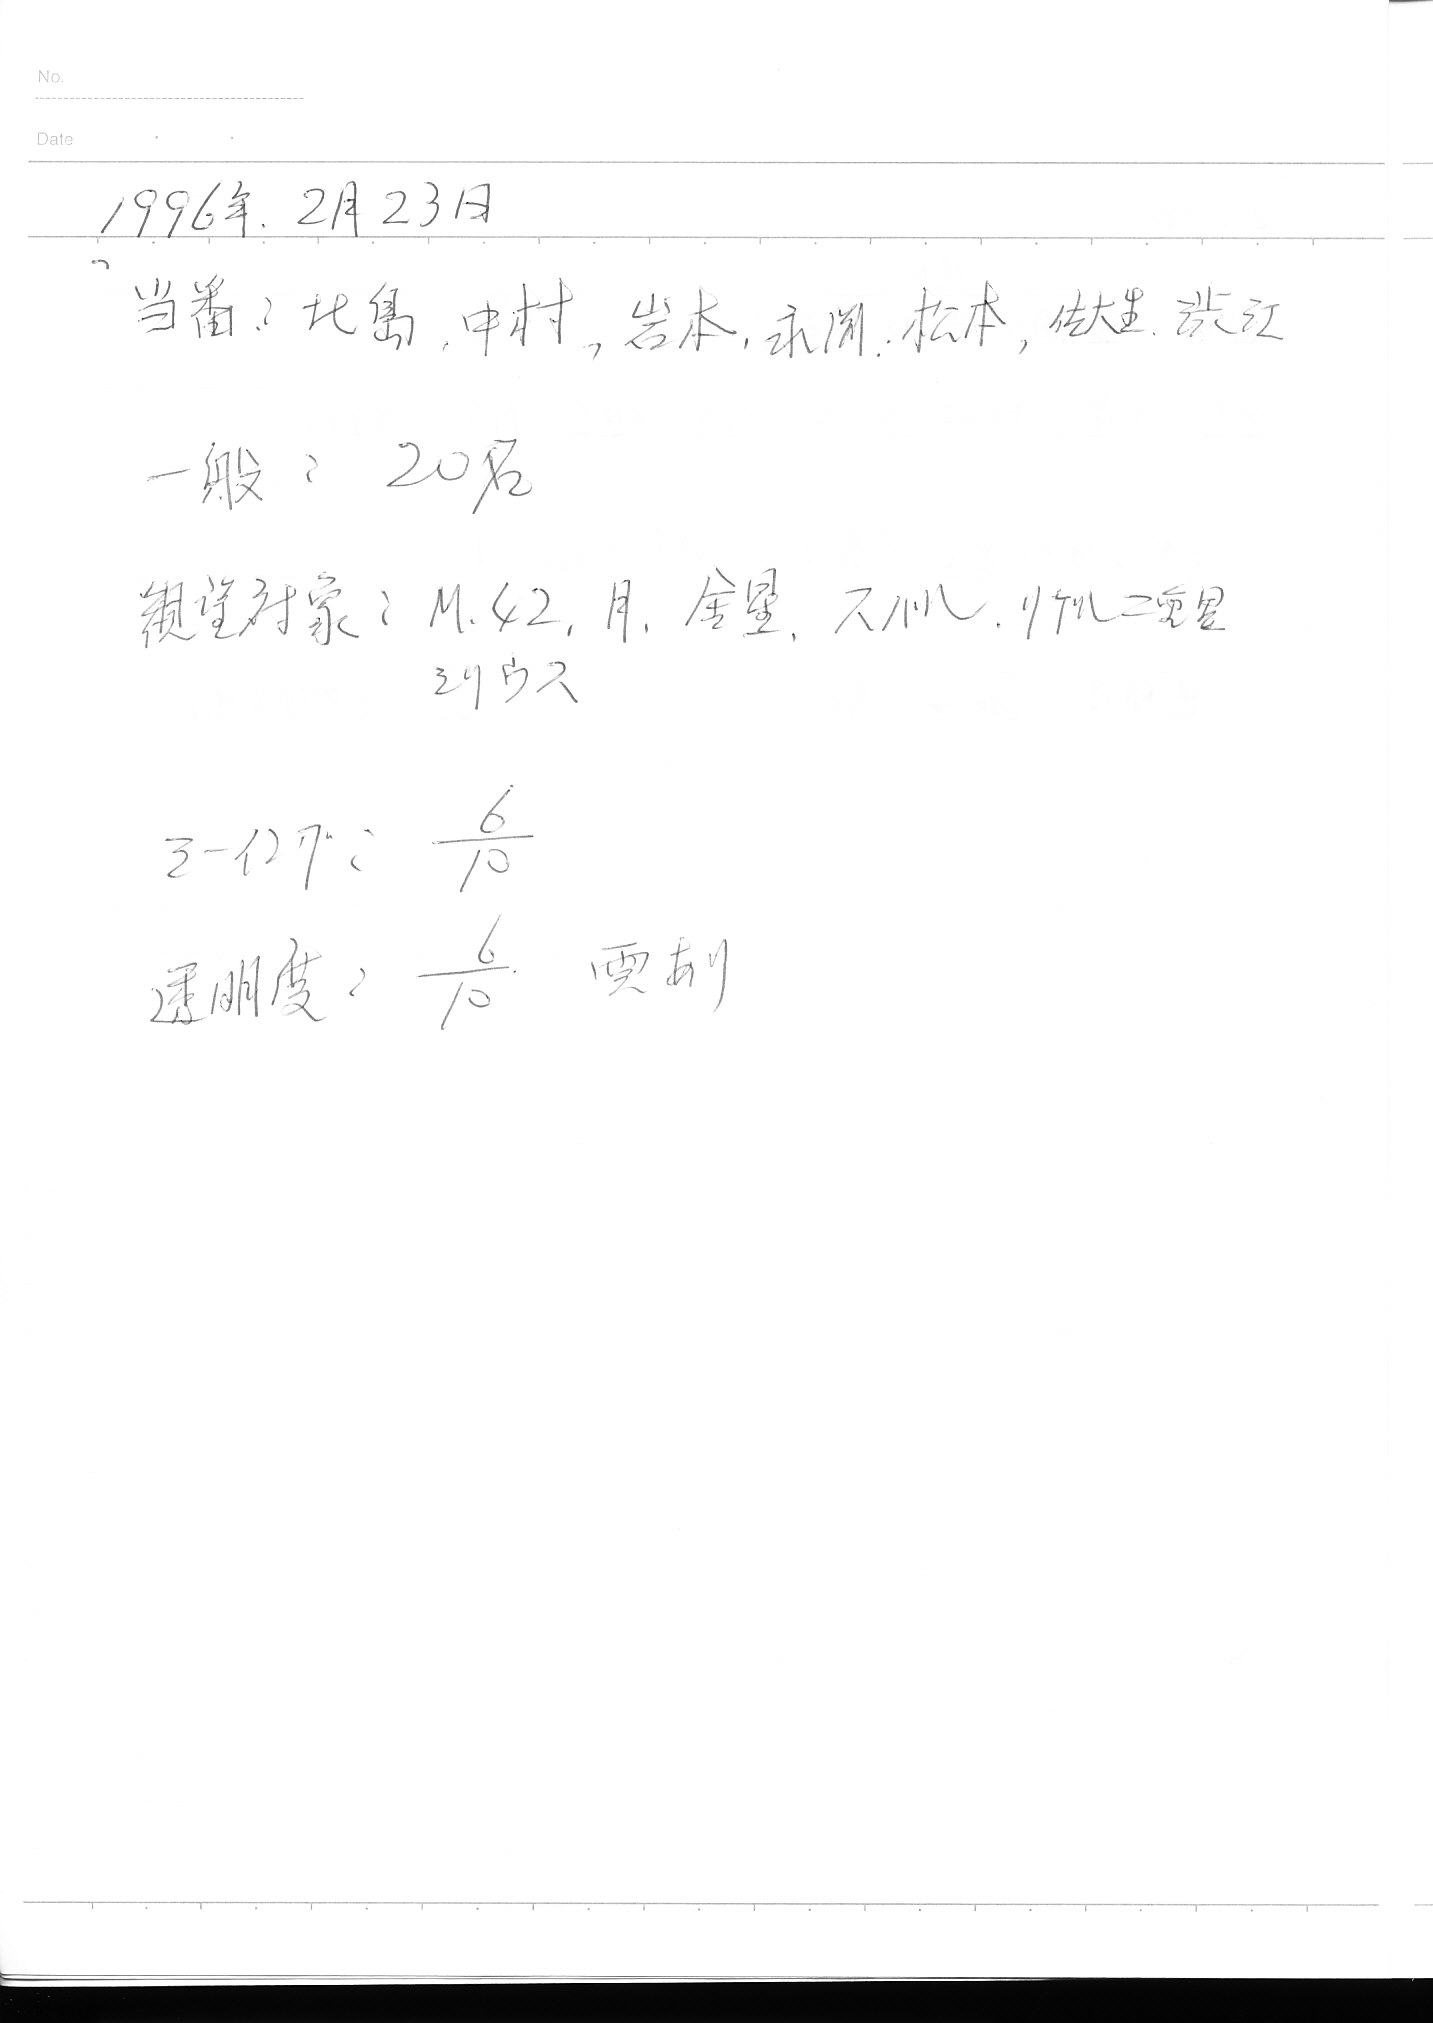 No.
Date
1996年. 2月23日
当番: 北島, 中村, 岩本, 永渕, 松本, 佐生, 渋江
一般: 20名
観望対象: M.42, 月, 金星, スバル, リゲル二重星
シリウス
シーイング: 6/10
透明度: 6/10 雲あり